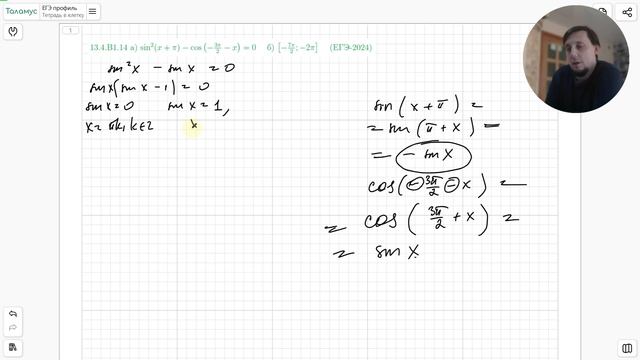 Таламус
ЕГЭ профиль
Тетрадь в клетку
1
13.4.B1.14 а) sin²(x + π) − cos(−3π/2 − x) = 0 б) [−7π/2; −2π] (ЕГЭ-2024)
sin²x − sin x = 0
sin x(sin x − 1) = 0
sin x = 0 sin x = 1,
x = πk, k ∈ Z x
sin(x + π) =
= sin(π + x) =
= − sin x
cos(−3π/2 − x) =
= cos(3π/2 + x) =
= sin x